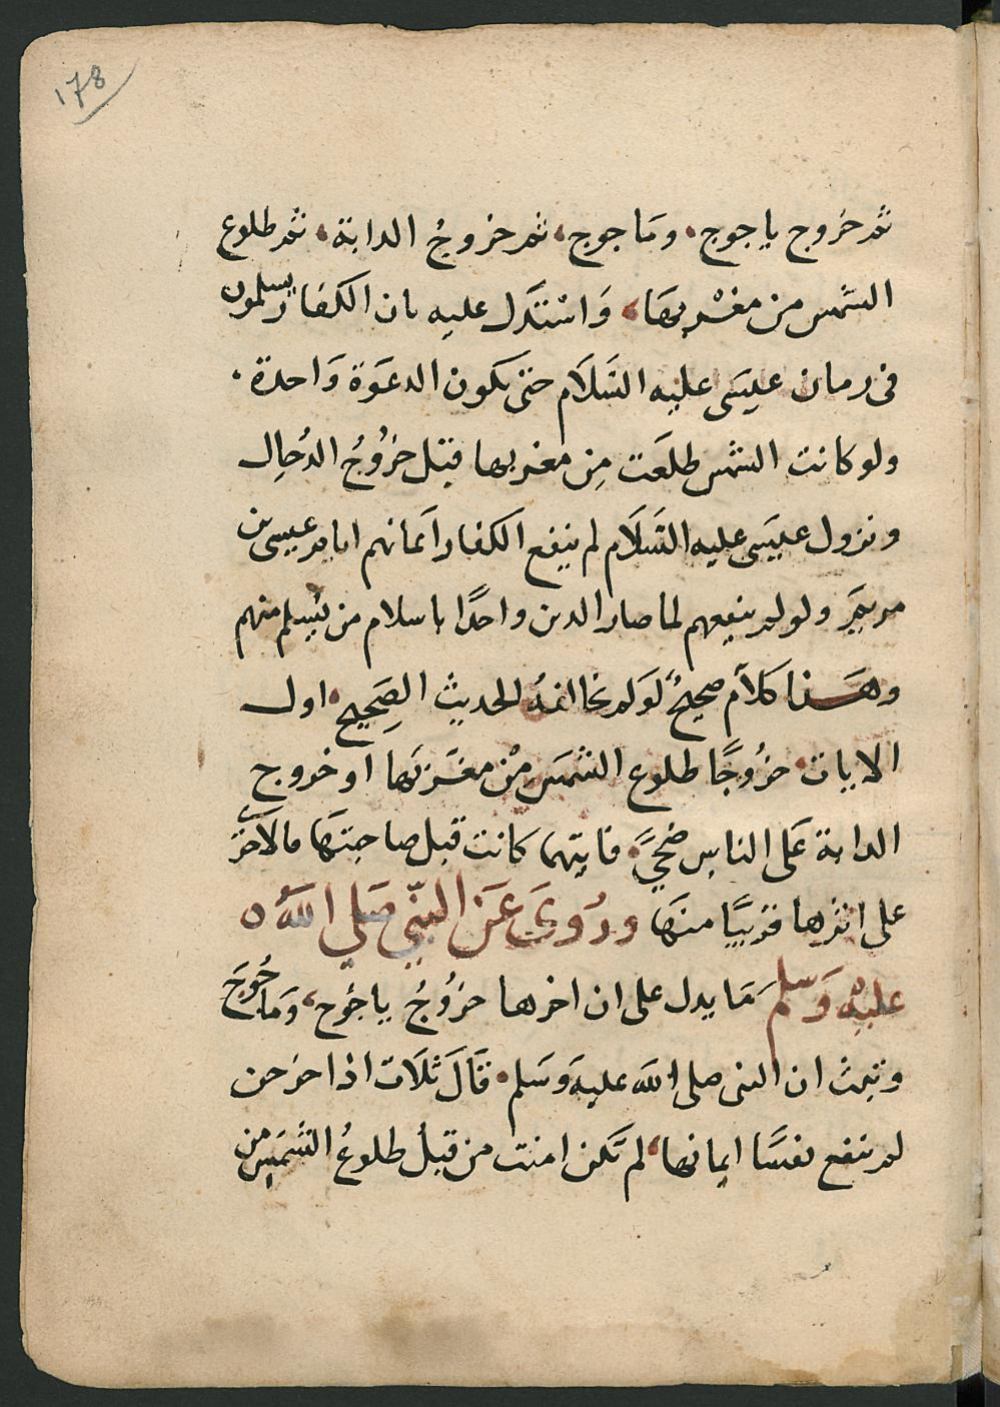 178
ثم خروج ياجوج، وماجوج، ثم خروجُ الدابة، ثم طلوع
الشمس من مغْربهَا، وَاسْتَدَل عليه بان الكفار يسلمون
فى زمان عيسَى عليه السَلَام حتى تكون الدعوَة وَاحدة،
ولو كانت الشمس طلعَت مِن مغربها قبل خرُوُجُ الدُجالِ
ونزول عيسَى عليه السَلَام لم ينفع الكفار اَيمانهم ايام عيسى بن
مريَم ولو لم ينفعهم لما صار الدين واحدًا باسلام من يُسلم منهم
وهَذا كَلَام صحيحٌ لوَلم نخالفهُ لحديث الصَحِيح، اول
الايات خرُوجًا طلوع الشمسَ مِنْ مغَربهَا او خروج
الدابة عَلى الناس ضحيً، فايتهما كانت قبل صاحبتهَا فالاَخرَى
على اثرها قريبًا منهَا ورُوىَ عَن النبّي صَلي اللهُ ه
عليْه وَسلم مَا يدل على ان اخرها خرُوُجُ ياجُوج، وَماجُوجَ
وثبتَ ان النبى صلى الله عليهَ وسَلم، قَالَ ثلَاث اذا خرجن
لم ينفع نفسًا ايمانها، لم تَكن امنت من قبلُ طلوعُ الشمَسِ من